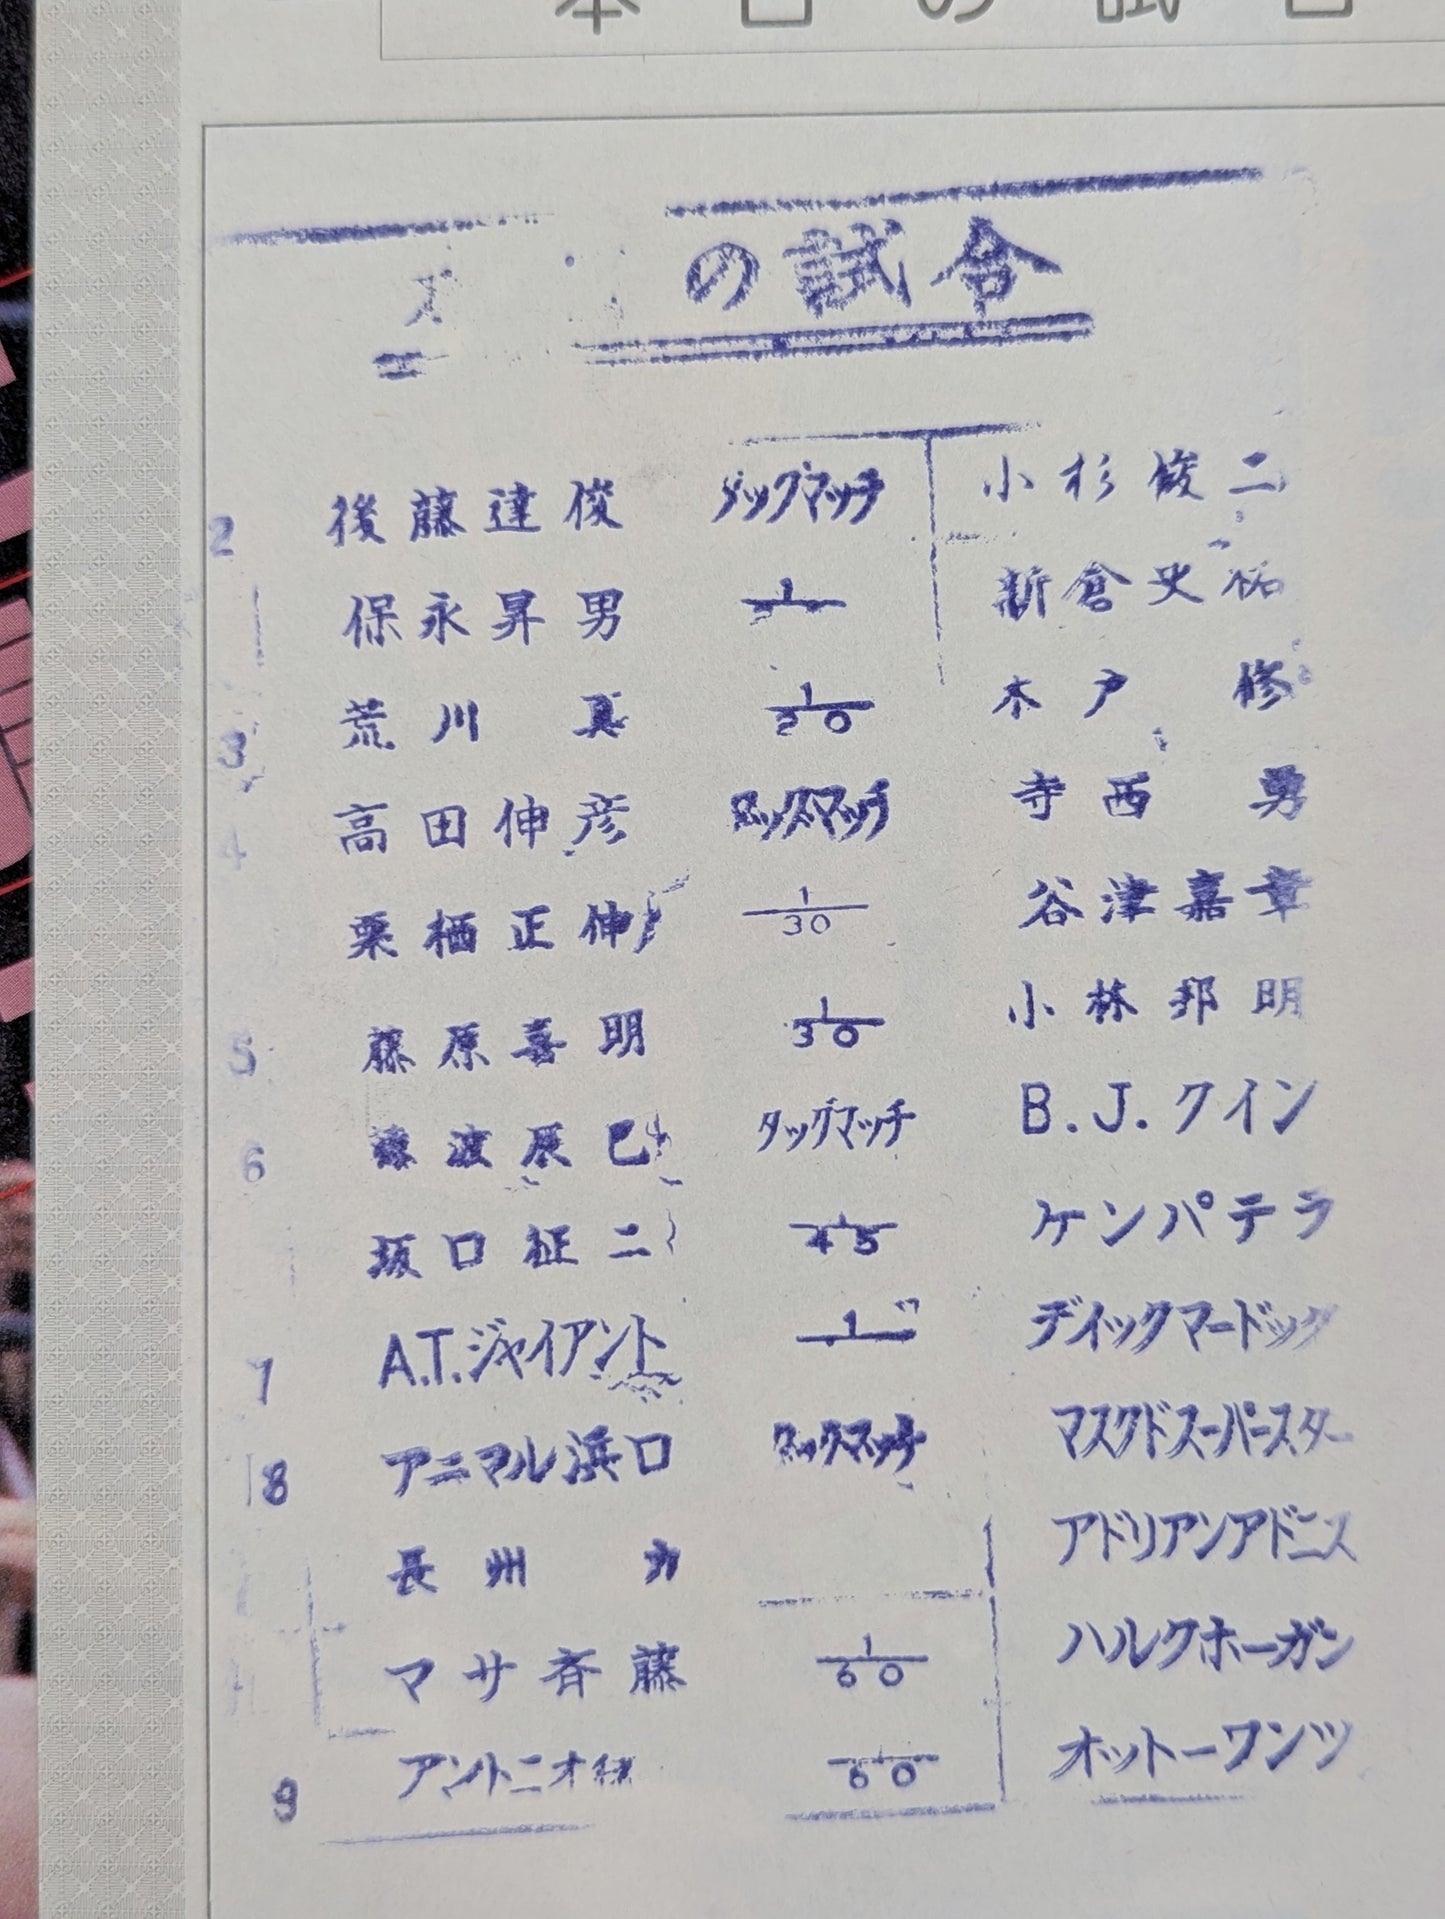 本日の試合
の試合
2 後藤達俊 タッグマッチ 小杉俊二
保永昇男 1 新倉史祐
3 荒川真 1/20 木戸修
4 高田伸彦 タッグマッチ 寺西勇
栗栖正伸 1/30 谷津嘉章
5 藤原喜明 1/30 小林邦明
6 藤波辰巳 タッグマッチ B.J.クイン
坂口征二 1/45 ケンパテラ
7 A.T.ジャイアント 1 ディックマードック
8 アニマル浜口 タッグマッチ マスクドスーパースター
長州力 アドリアンアドニス
マサ斉藤 1/60 ハルクホーガン
9 アントニオ猪 1/60 オットーワンツ